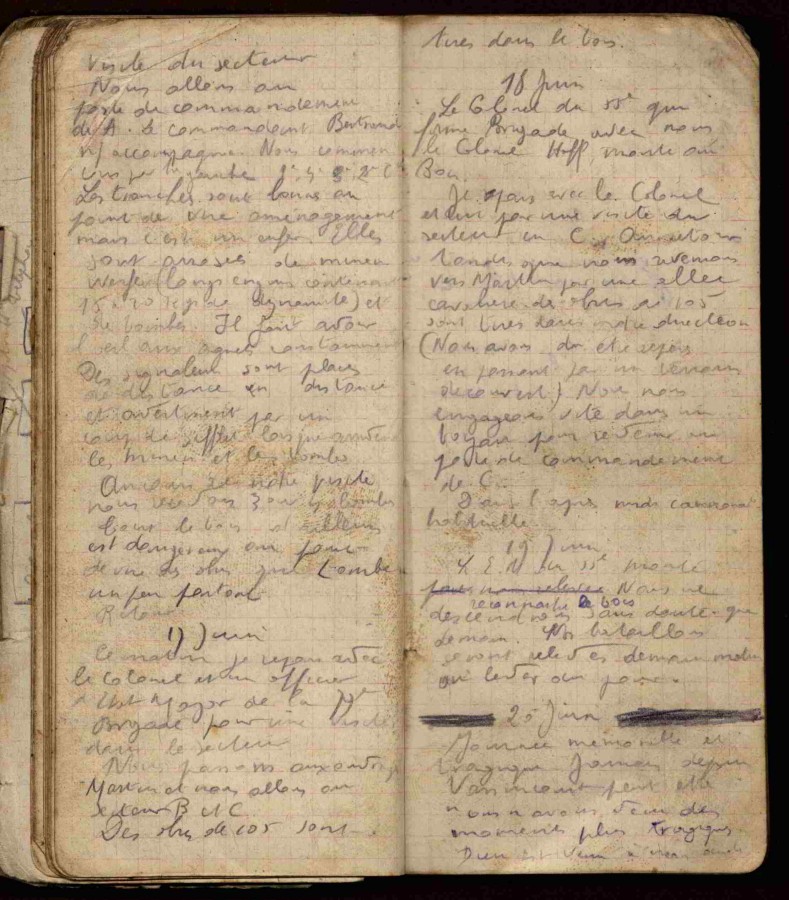 Visite du secteur
Nous allons au
poste de commandement
de A. Le commandant Bertrand
n/ accompagne. Nous commen
par gauche
Les tranchées sont bonnes au
point de vue aménagement
mais c'est un enfer. Elles
sont arrosées de minen
werfer (longs engins contenant
15 à 20 kgs de dynamite) et
de bombes. Il faut avoir
l'oeil aux aguets constamment
Des signaleurs sont placés
de distance en distance
et avertissent par un
coup de sifflet lorsque arrivent
les minen et les bombes
Au cours de notre visite
nous recevons 3 ou 4 bombes
Tout le bois d'ailleurs
est dangereux au point
de vue des obus qui tombent
un peu partout
Retour
17 Juin
Ce matin je repars avec
le Colonel et un officier
d'Etat Major de la
Brigade pour une visite
dans le secteur
Nous passons aux
Martin et nous allons au
secteur B et C.
Des obus de 105 sont
tirés dans le bois.
18 Juin
Le Colonel du 55e qui
forme Brigade avec nous
le Colonel Hoff, monte au
Bois.
Je pars avec le Colonel
et lui pour une visite du
secteur en C.
tandis que nous revenons
vers Martin par une allée
cavalière des obus de 105
sont tirés dans notre direction
(Nous avons dû être repérés
en passant par un terrain
découvert) Nous nous
engageons vite dans un
boyau pour revenir au
poste de commandement
de C.
Dans l'après midi canonnade
habituelle.
19 Juin
L'E.M. du 55e monte
reconnaître le bois
Nous ne
descendrons sans doute que
demain. Nos bataillons
seront relevés demain matin
au lever du jour.
20 Juin
Journée mémorable et
tragique Jamais depuis
Vassincourt peut être
nous n'avons vécu des
moments plus tragiques
Dieu est venu